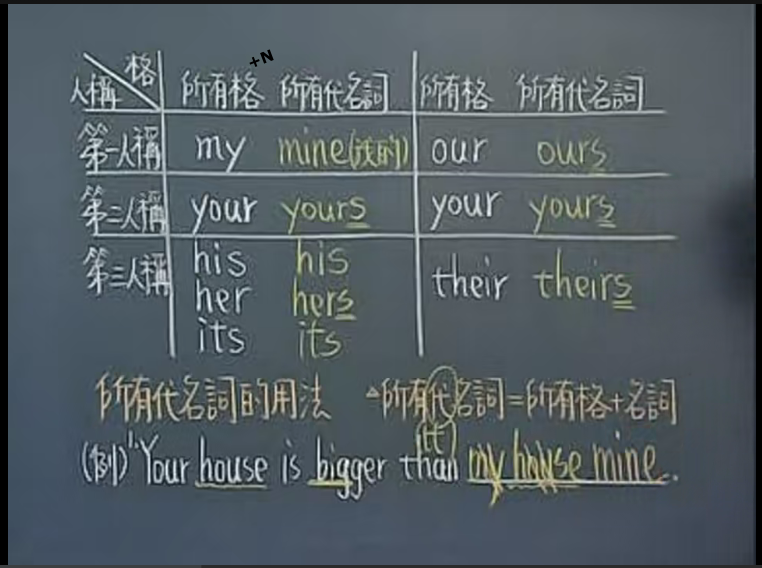 +N
格
人稱 所有格 所有代名詞 所有格 所有代名詞
第一人稱 my mine(我的) our ours
第二人稱 your yours your yours
第三人稱 his his their theirs
her hers
its its
所有代名詞的用法 △所有代名詞=所有格+名詞
(代)
(例)1. Your house is bigger than my house mine.